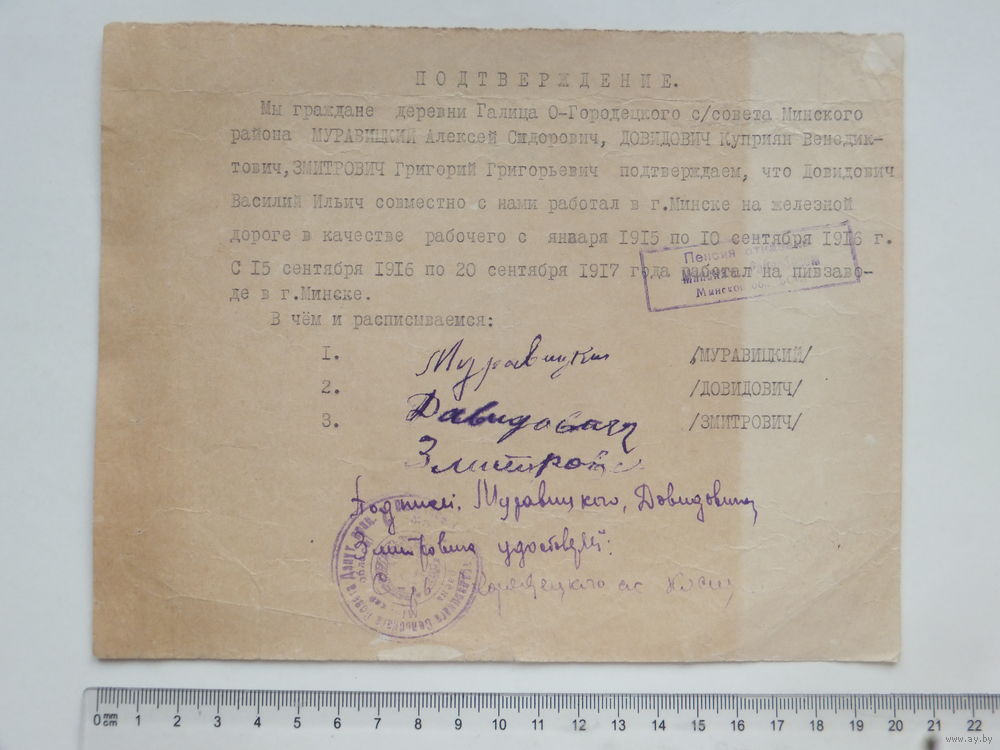 ПОДТВЕРЖДЕНИЕ.
Мы граждане деревни Галица О-Городецкого с/совета Минского
района МУРАВИЦКИЙ Алексей Сидорович, ДОВИДОВИЧ Куприян Венедик-
тович, ЗМИТРОВИЧ Григорий Григорьевич подтверждаем, что Довидович
Василий Ильич совместно с нами работал в г.Минске на железной
дороге в качестве рабочего с января 1915 по 10 сентября 1916 г.
С 15 сентября 1916 по 20 сентября 1917 года работал на пивзаво-
де в г.Минске.
Пенсия
Минской
В чём и расписываемся:
1. Муравицки /МУРАВИЦКИЙ/
2. Давидович /ДОВИДОВИЧ/
3. Змитрович /ЗМИТРОВИЧ/
Подписи Муравицкого, Довидовича
Змитровича
Сельскага Савета Дэпут.
0 mm cm 1 2 3 4 5 6 7 8 9 10 11 12 13 14 15 16 17 18 19 20 21 22
www.ay.by